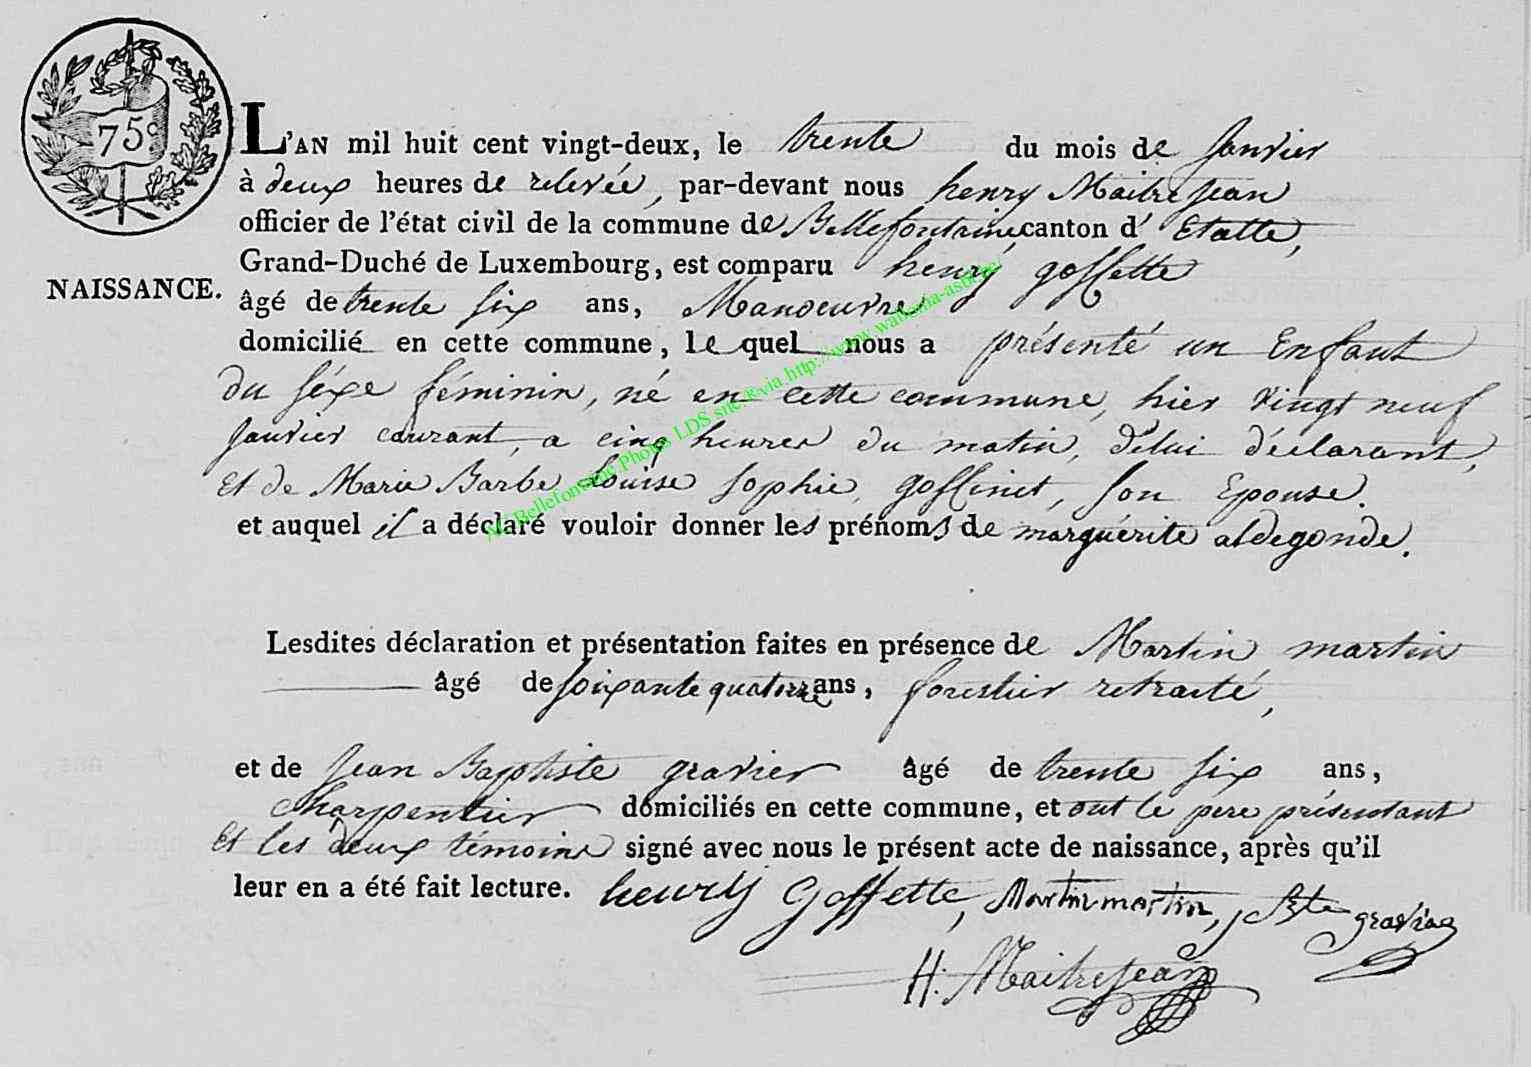 75c
L'AN mil huit cent vingt-deux, le trente du mois de Janvier
à deux heures de relevée, par-devant nous henry Maitrejean
officier de l'état civil de la commune de Bellefontaine, canton d' Etalle,
Grand-Duché de Luxembourg, est comparu henry goffette
NAISSANCE.
âgé de trente six ans, Manoeuvre
domicilié en cette commune, le quel nous a présenté un Enfant
du séxe féminin, né en cette commune, hier vingt neuf
Janvier courant, a cinq heures du matin, de lui déclarant,
et de Marie Barbe Louise Sophie goffinet, son Epouse.
et auquel il a déclaré vouloir donner les prénoms de marguérite aldegonde.
Lesdites déclaration et présentation faites en présence de Martin martin
âgé de soixante quatorze ans, forestier retraité,
et de Jean Baptiste gravier âgé de trente six ans,
Charpentier domiciliés en cette commune, et ont le pere présentant
et les deux témoins signé avec nous le présent acte de naissance, après qu'il
leur en a été fait lecture. henry Goffette, Martin martin, j Bte gravier
H: Maitrejean
AC Bellefontaine Photos LDS snc &via http://www.wabania-asbl.be/